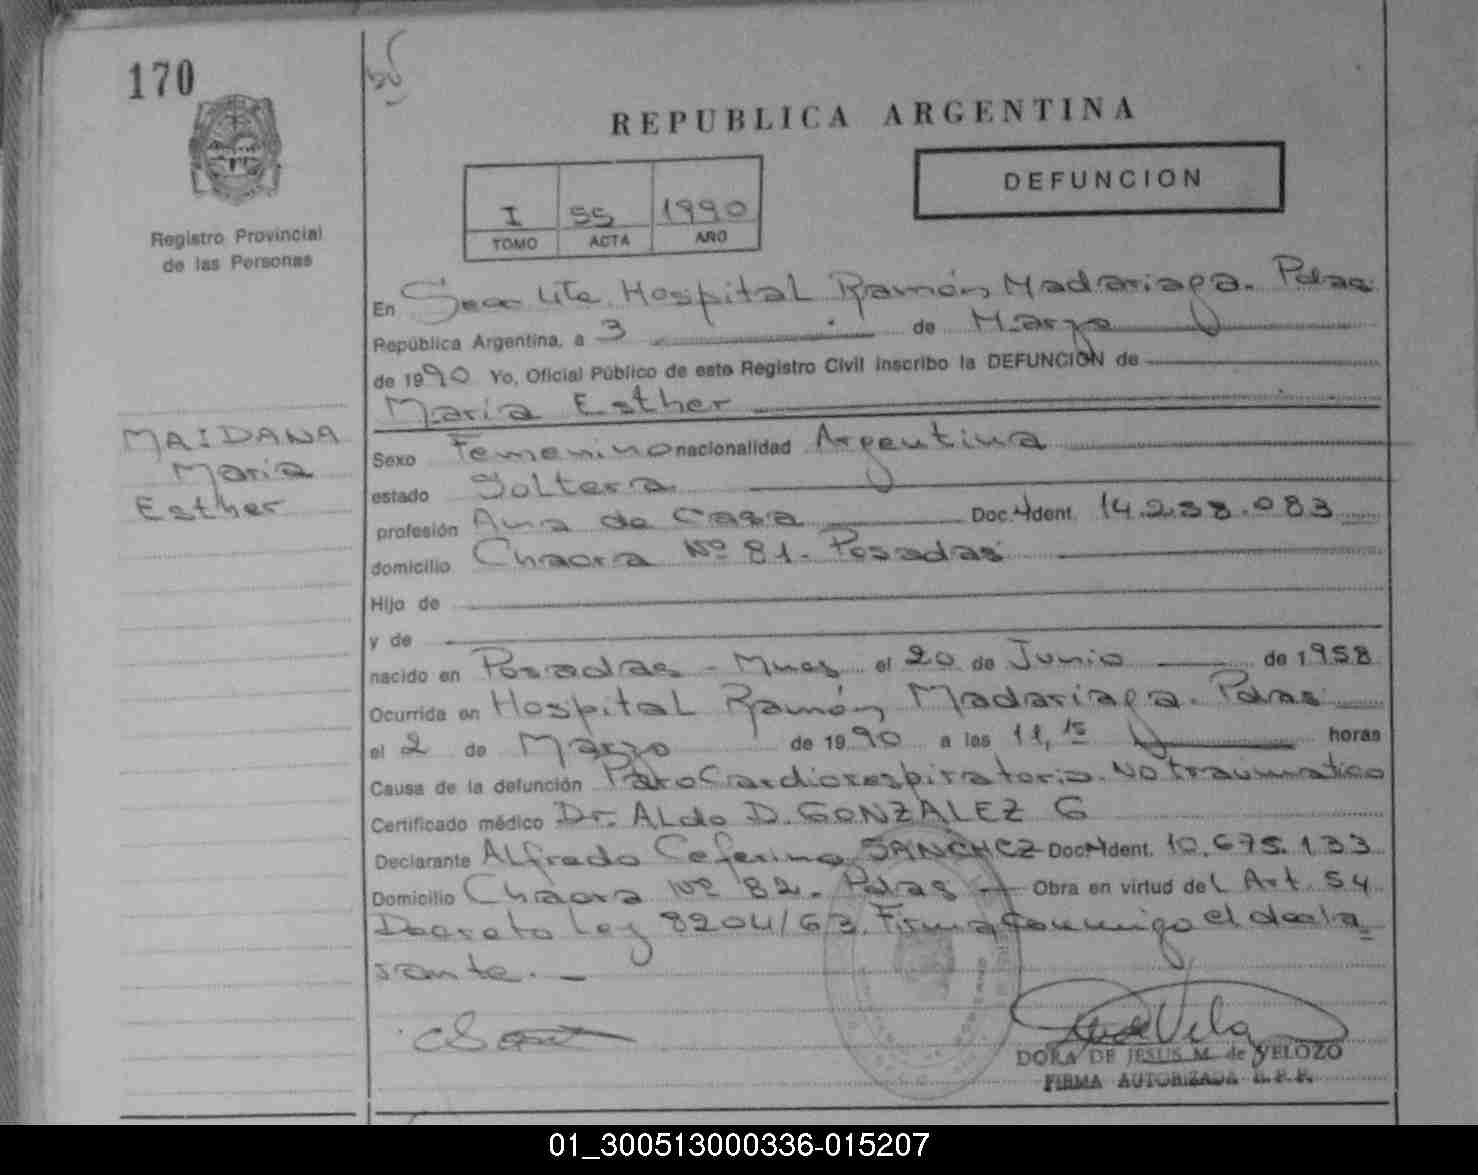 170
REPUBLICA ARGENTINA
DEFUNCION
I 55 1990
TOMO ACTA AÑO
Registro Provincial
de las Personas
En Secc Hospital Ramón Madariaga. Pdas
República Argentina, a 3 de Marzo
de 1990 Yo, Oficial Público de este Registro Civil inscribo la DEFUNCION de
María Esther
MAIDANA
María
Esther
Sexo Femenino nacionalidad Argentina
estado Soltera
profesión Ama de Casa Doc. Ident. 14.238.083
domicilio Chacra Nº 81. Posadas
Hijo de
y de
nacido en Posadas - Mnes el 20 de Junio de 1958
Ocurrida en Hospital Ramón Madariaga. Pdas
el 2 de Marzo de 1990 a las 11,15 horas
Causa de la defunción Paro Cardiorespiratorio. No traumatico
Certificado médico Dr. Aldo D. GONZALEZ G
Declarante Alfredo Ceferino SANCHEZ Doc. Ident. 10.675.133
Domicilio Chacra Nº 82. Pdas - Obra en virtud del Art. 54
Decreto Ley 8204/63. Firma conmigo el decla
rante. -
DORA DE JESUS M. de VELOZO
FIRMA AUTORIZADA R.P.P.
01_300513000336-015207